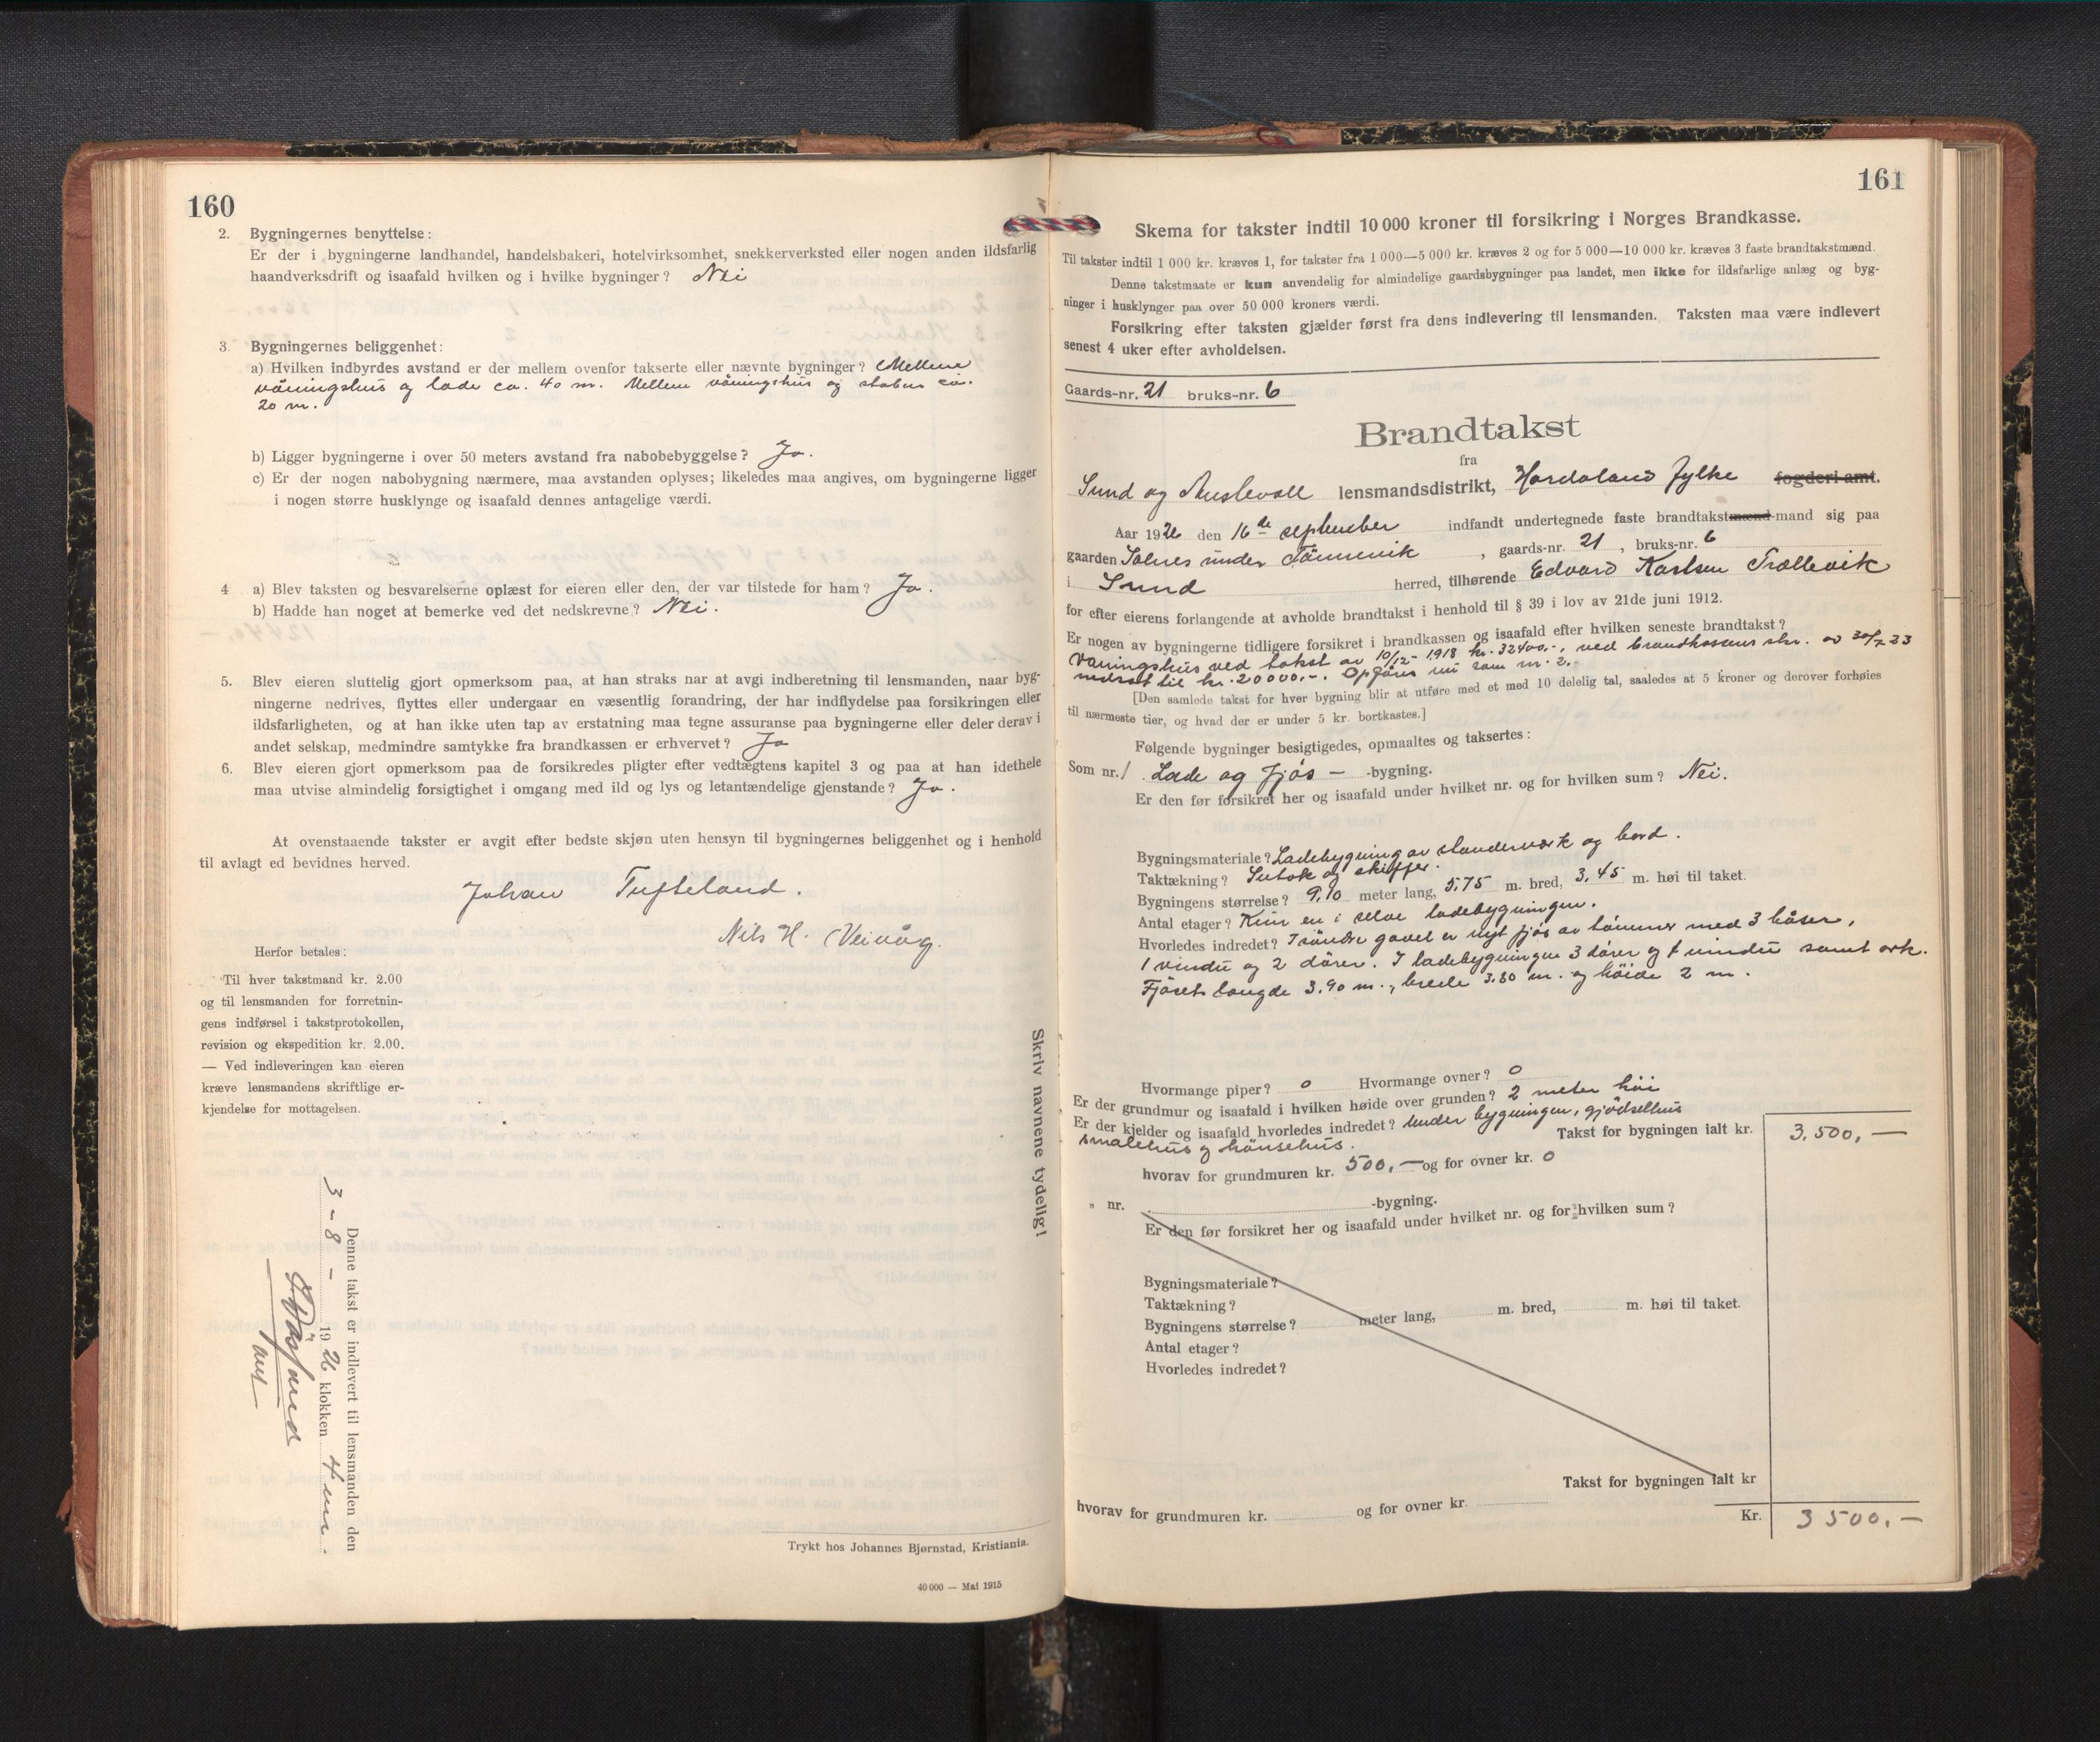 160
2. Bygningernes benyttelse:
Er der i bygningerne landhandel, handelsbakeri, hotelvirksomhet, snekkerverksted eller nogen anden ildsfarlig
haandverksdrift og isaafald hvilken og i hvilke bygninger? Nei
3. Bygningernes beliggenhet:
a) Hvilken indbyrdes avstand er der mellem ovenfor takserte eller nævnte bygninger? Mellem
våningshus og lade ca. 40 m. Mellem våningshus og stabur ca.
20 m.
b) Ligger bygningerne i over 50 meters avstand fra nabobebyggelse? Ja.
c) Er der nogen nabobygning nærmere, maa avstanden oplyses; likeledes maa angives, om bygningerne ligger
i nogen større husklynge og isaafald dennes antagelige værdi.
4 a) Blev taksten og besvarelserne oplæst for eieren eller den, der var tilstede for ham? Ja.
b) Hadde han noget at bemerke ved det nedskrevne? Nei.
5. Blev eieren sluttelig gjort opmerksom paa, at han straks har at avgi indberetning til lensmanden, naar byg-
ningerne nedrives, flyttes eller undergaar en væsentlig forandring, der har indflydelse paa forsikringen eller
ildsfarligheten, og at han ikke uten tap av erstatning maa tegne assuranse paa bygningerne eller deler derav i
andet selskap, medmindre samtykke fra brandkassen er erhvervet? Ja
6. Blev eieren gjort opmerksom paa de forsikredes pligter efter vedtægtens kapitel 3 og paa at han idethele
maa utvise almindelig forsigtighet i omgang med ild og lys og letantændelige gjenstande? Ja.
At ovenstaaende takster er avgit efter bedste skjøn uten hensyn til bygningernes beliggenhet og i henhold
til avlagt ed bevidnes herved.
Johan Tufteland.
Nils H. Veivåg.
Herfor betales:
Til hver takstmand kr. 2.00
og til lensmanden for forretnin-
gens indførsel i takstprotokollen,
revision og ekspedition kr. 2.00.
— Ved indleveringen kan eieren
kræve lensmandens skriftlige er-
kjendelse for mottagelsen.
Denne takst er indlevert til lensmanden den
3 - 8 - 1926 klokken 4 em.
Skriv navnene tydelig!
Trykt hos Johannes Bjørnstad, Kristiania.
40 000 — Mai 1915
161
Skema for takster indtil 10 000 kroner til forsikring i Norges Brandkasse.
Til takster indtil 1 000 kr. kræves 1, for takster fra 1 000—5 000 kr. kræves 2 og for 5 000—10 000 kr. kræves 3 faste brandtakstmænd.
Denne takstmaate er kun anvendelig for almindelige gaardsbygninger paa landet, men ikke for ildsfarlige anlæg og byg-
ninger i husklynger paa over 50 000 kroners værdi.
Forsikring efter taksten gjælder først fra dens indlevering til lensmanden. Taksten maa være indlevert
senest 4 uker efter avholdelsen.
Gaards-nr. 21 bruks-nr. 6
Brandtakst
fra
Sund og Austevoll lensmandsdistrikt, Hordaland fylke fogderi amt.
Aar 1926 den 16de september indfandt undertegnede faste brandtakstmænd-mand sig paa
gaarden Solnes under Tømmervik, gaards-nr. 21, bruks-nr. 6
i Sund herred, tilhørende Edvard Karlsen Trællevik
for efter eierens forlangende at avholde brandtakst i henhold til § 39 i lov av 21de juni 1912.
Er nogen av bygningerne tidligere forsikret i brandkassen og isaafald efter hvilken seneste brandtakst?
Våningshus ved takst av 10/12- 1918 kr. 32400.-, ved brandkassens skr. av 30/7 23
nedsat til kr. 20000.-. Opføres nu som nr. 2.-
[Den samlede takst for hver bygning blir at utføre med et med 10 delelig tal, saaledes at 5 kroner og derover forhøies
til nærmeste tier, og hvad der er under 5 kr. bortkastes.]
Følgende bygninger besigtigedes, opmaaltes og taksertes:
Som nr. 1 Lade og fjøs - -bygning.
Er den før forsikret her og isaafald under hvilket nr. og for hvilken sum? Nei.
Bygningsmateriale? Ladebygning av stenderværk og bord.
Taktækning? Sutak og skiffer.
Bygningens størrelse? 9,10 meter lang, 5,75 m. bred, 3,45 m. høi til taket.
Antal etager? Kun en i selve ladebygningen.
Hvorledes indredet? I søndre gavel er nyt fjøs av tømmer med 3 båser,
1 vindu og 2 dører. I ladebygningen 3 dører og 1 vindu samt ark.
Fjøsets længde 3.90 m., brede 3.80 m. og høide 2 m.
Hvormange piper? 0 Hvormange ovner? 0
Er der grundmur og isaafald i hvilken høide over grunden? 2 meter høi
Er der kjelder og isaafald hvorledes indredet? Under bygningen, gjødselhus
smalehus og hønsehus.
Takst for bygningen ialt kr. 3.500,-
hvorav for grundmuren kr. 500,- og for ovner kr. 0
" nr. -bygning.
Er den før forsikret her og isaafald under hvilket nr. og for hvilken sum?
Bygningsmateriale?
Taktækning?
Bygningens størrelse? meter lang, m. bred, m. høi til taket.
Antal etager?
Hvorledes indredet?
Takst for bygningen ialt kr
hvorav for grundmuren kr. og for ovner kr.
Kr. 3500,-